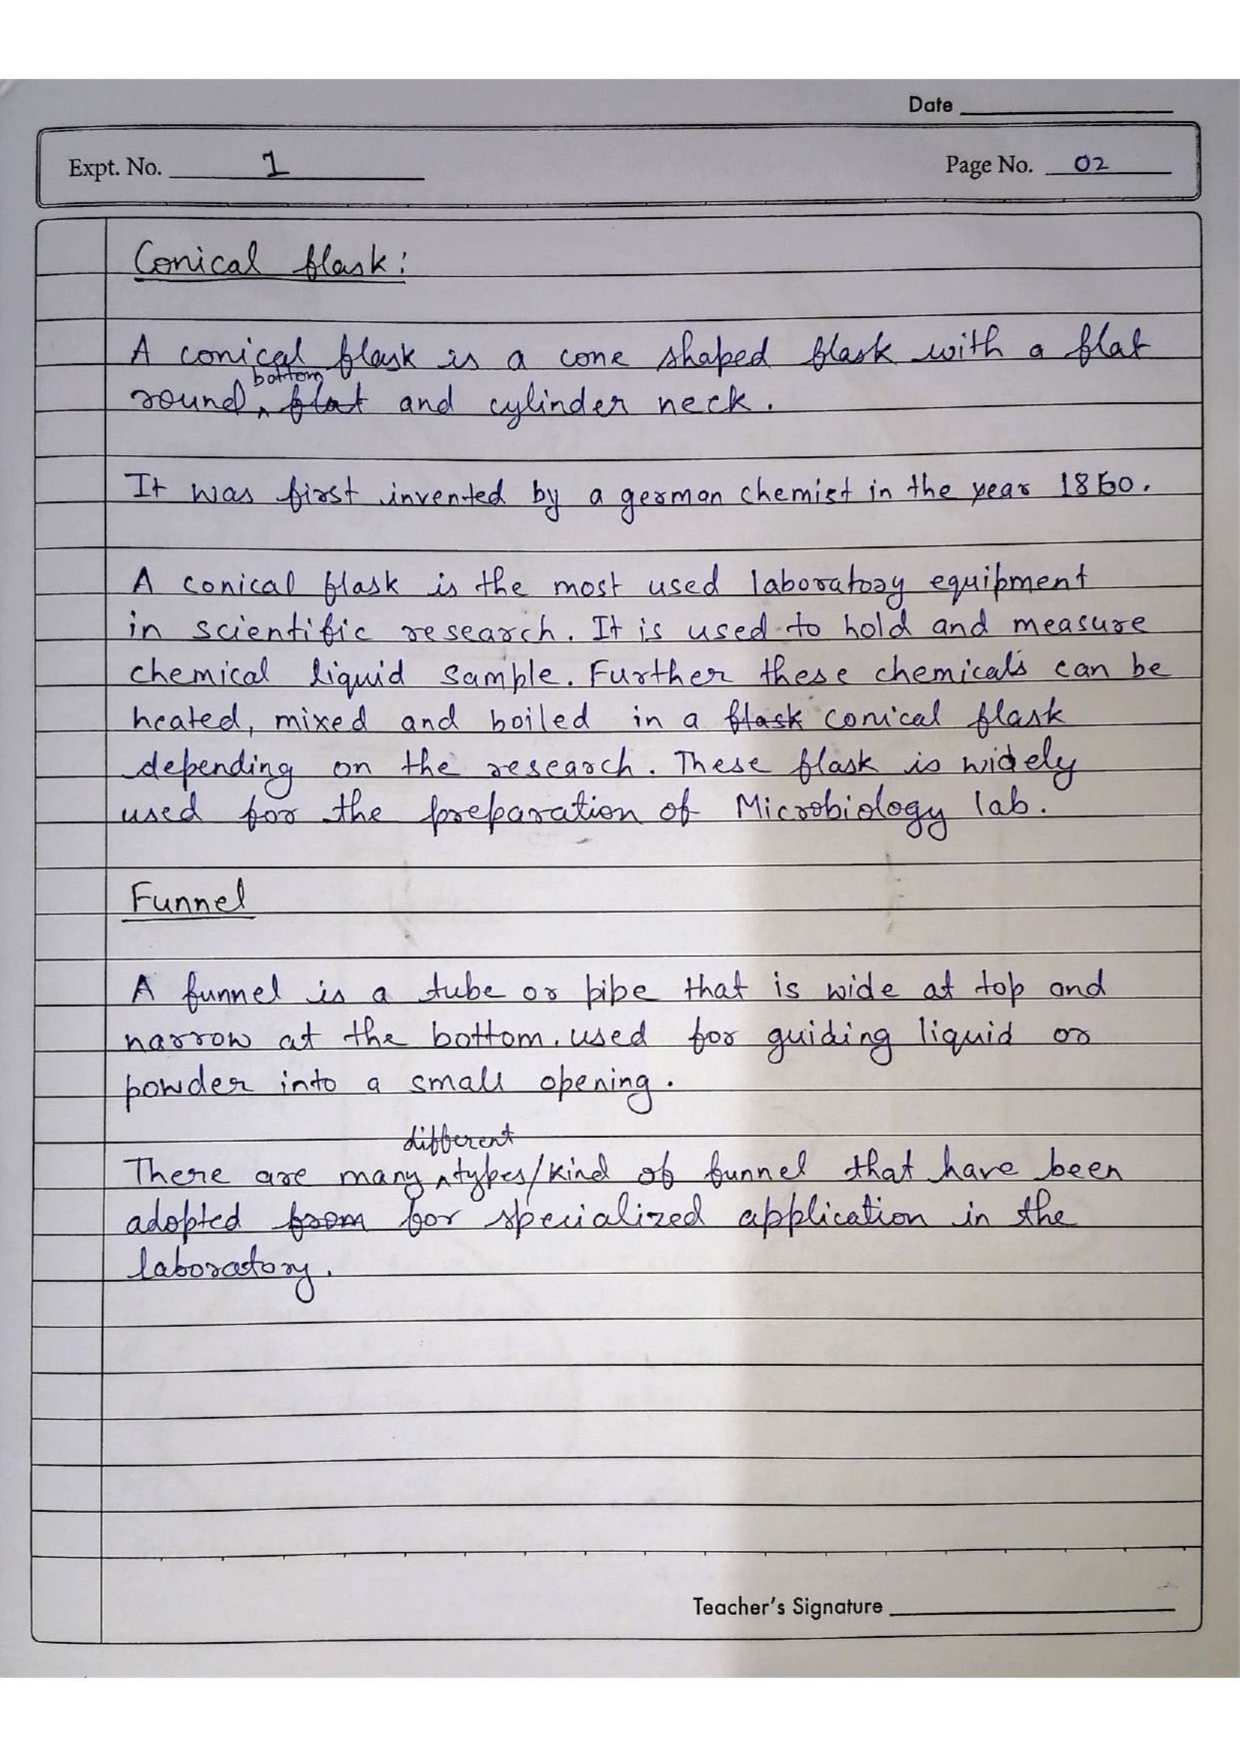 Date
Expt. No. 1
Page No. 02
Conical flask:
A conical flask is a cone shaped flask with a flat
bottom
round ^ flat and cylinder neck.
It was first invented by a german chemist in the year 1860.
A conical flask is the most used laboratory equipment
in scientific research. It is used to hold and measure
chemical liquid sample. Further these chemicals can be
heated, mixed and boiled in a flask conical flask
depending on the research. These flask is widely
used for the preparation of Microbiology lab.
Funnel
A funnel is a tube or pipe that is wide at top and
narrow at the bottom. used for guiding liquid or
powder into a small opening.
different
There are many ^ types/kind of funnel that have been
adopted from for specialized application in the
laboratory.
Teacher's Signature